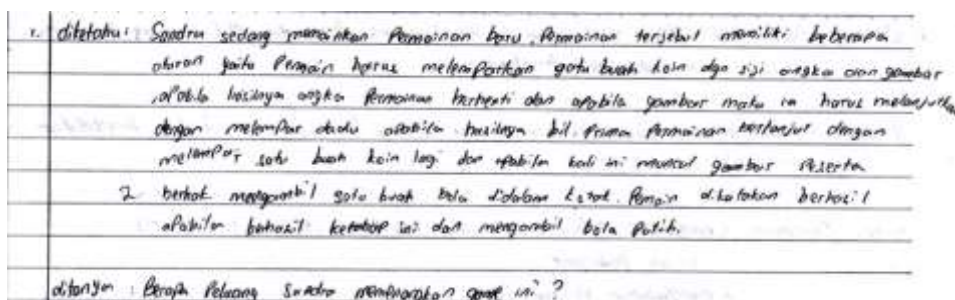 1. diketahui: Sandra sedang memainkan Permainan baru. Permainan tersebut memiliki beberapa
aturan yaitu Pemain harus melemparkan satu buah koin dgn sisi angka dan gambar
, apabila hasilnya angka Permainan berhenti dan apabila gambar maka ia harus melanjutkan
dengan melempar dadu apabila hasilnya bil. Prima Permainan berlanjut dengan
melempar satu buah koin lagi dan apabila kali ini muncul gambar Peserta
2 berhak mengambil satu buah bola didalam kotak. Pemain dikatakan berhasil
apabila berhasil ketahap ini dan mengambil bola Putih.
ditanya: Berapa Peluang Sandra memenangkan game ini?